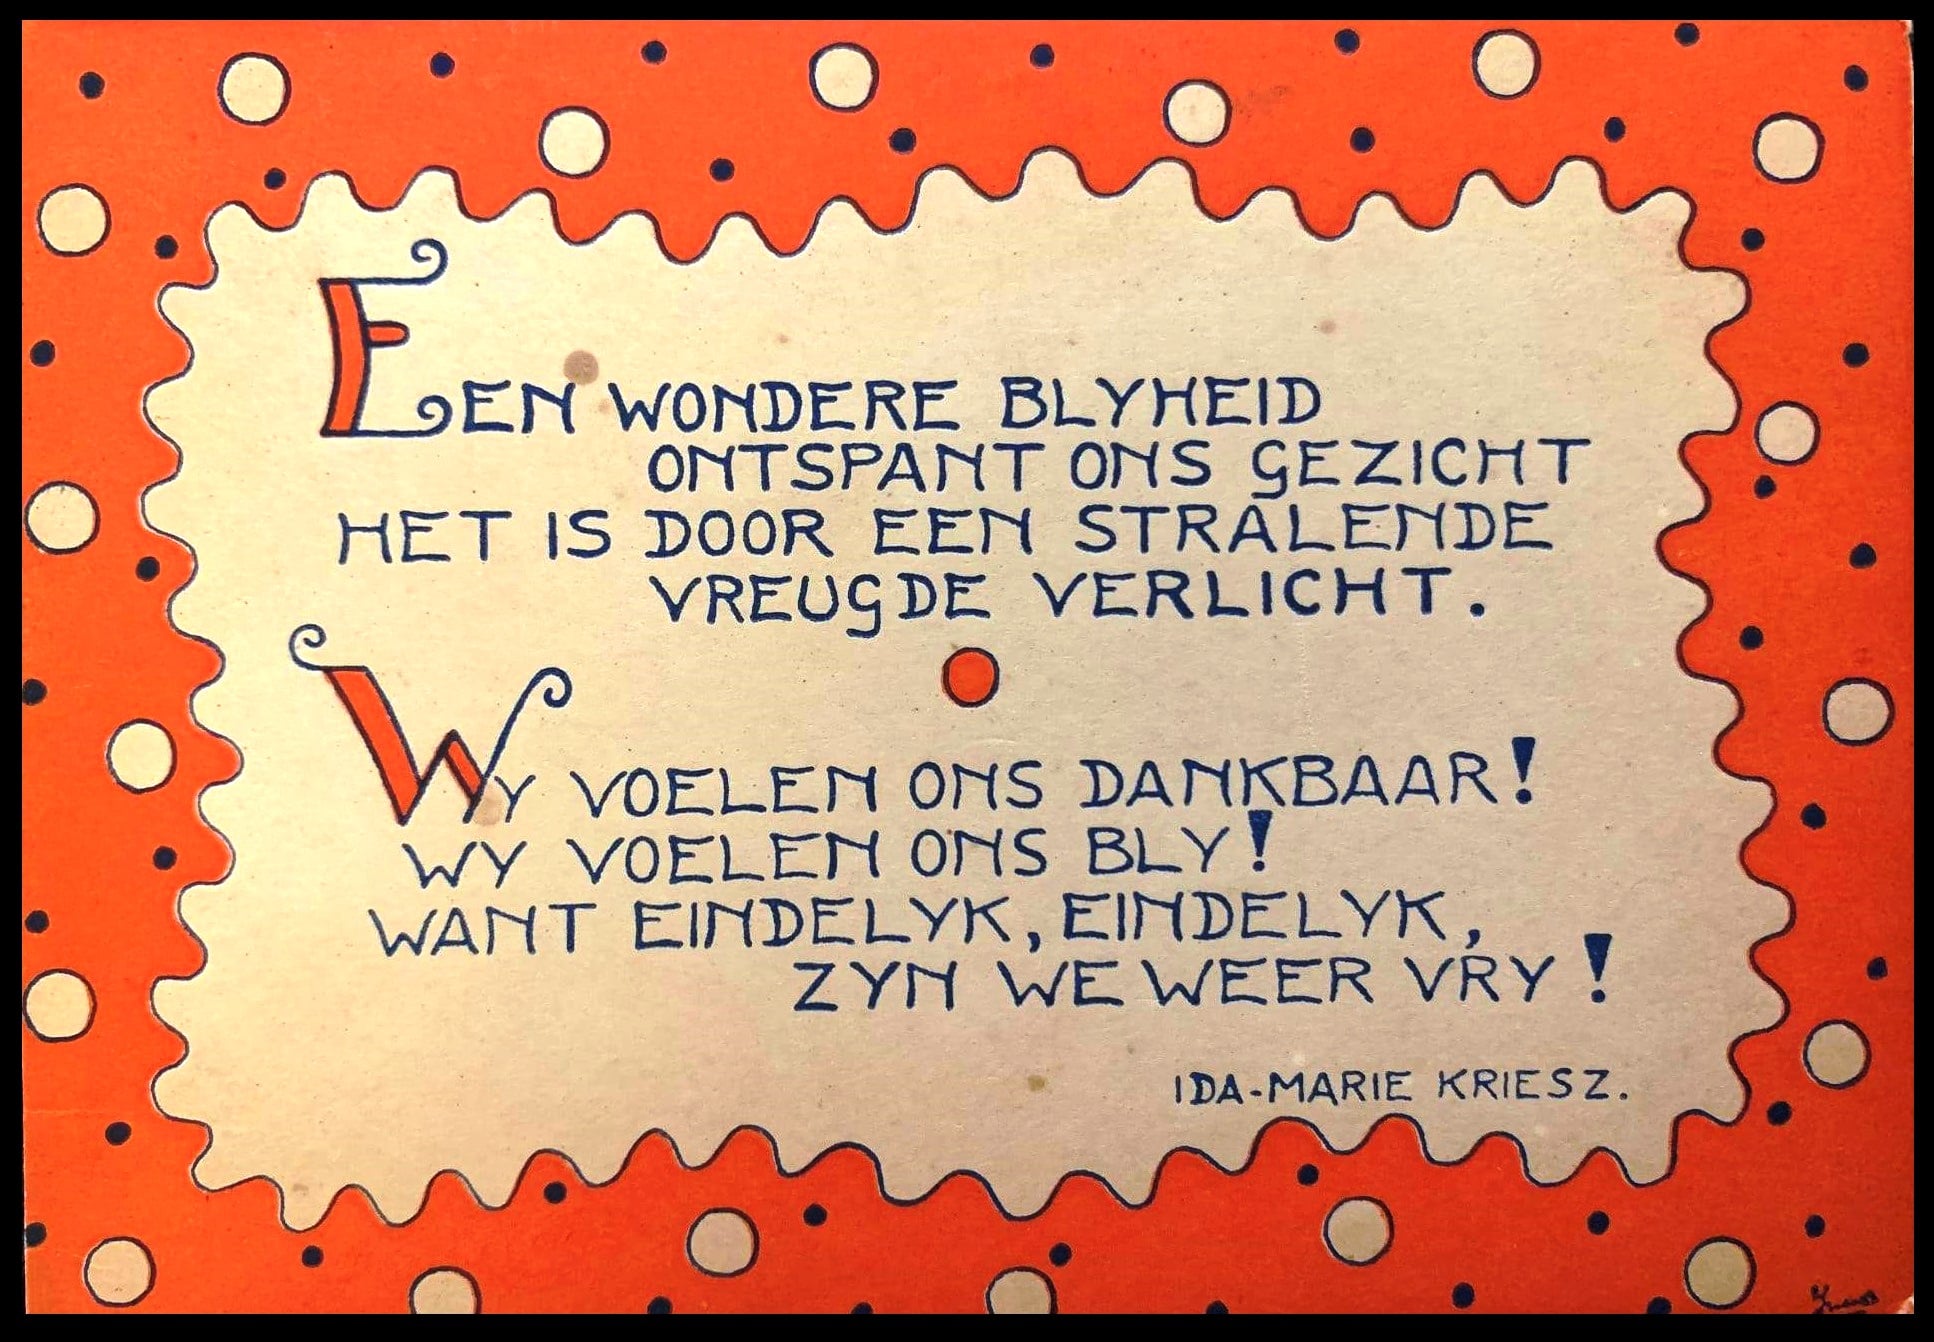 EEN WONDERE BLYHEID
ONTSPANT ONS GEZICHT
HET IS DOOR EEN STRALENDE
VREUGDE VERLICHT.
WY VOELEN ONS DANKBAAR!
WY VOELEN ONS BLY!
WANT EINDELYK, EINDELYK,
ZYN WE WEER VRY!
IDA-MARIE KRIESZ.